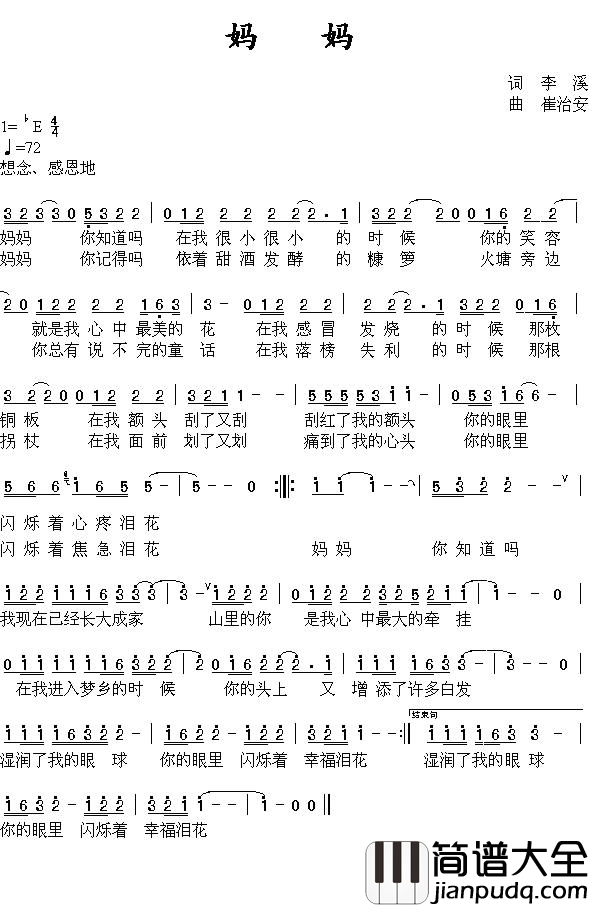 妈 妈
词 李 溪
曲 崔治安
1=♭E 4/4
♩=72
想念、感恩地
3 2 3 3 0 5 3 2 2 | 0 1 2 2 2 2 2 2. 1 | 3 2 2 2 0 0 1 6 2 2 |
妈妈 你知道吗 在我 很 小 很 小 的 时 候 你的 笑 容
妈妈 你记得吗 依着 甜 酒 发 酵 的 糠 箩 火塘 旁 边
2 0 0 1 2 2 2 2 1 6 3 | 3 - 0 1 2 2 2 | 2 2. 1 3 2 2 2 0 0 1 6 |
就是我 心 中 最美的 花 在我 感 冒 发 烧 的 时 候 那枚
你总有 说 不 完的童 话 在我 落 榜 失 利 的 时 候 那根
3 2 2 0 0 1 2 2 2 | 3 2 1 1 - - | 5 5 5 5 5 3 i i - | 0 5 5 3 i 6 6 - |
铜 板 在我 额 头 刮了又刮 刮红了我的额头 你的眼里
拐 杖 在我 面 前 划了又划 痛到了我的心头 你的眼里
5 6 6 i 6 5 5 - | 5 - - 0 :||: i i i - - | 5 3 2 2 - - ∨ |
闪 烁 着 心 疼 泪 花
闪 烁 着 焦 急 泪 花 妈 妈 你 知 道 吗
i 2 2 i i i 6 3 3 3 | 3 - 3 - ∨ i 2 2 2 | 0 i 2 2 2 3 2 5 2 i i |
我现在已经长大成家 山里的你 是我心 中最大的牵 挂
0 i i i i i 6 3 2 2 | 2 0 i 6 2 2 2 2. i | i i i i 6 i 3 - | 3 - - 0 |
在我进入梦乡的时 候 你的头上 又 增 添了许多白发
结束句
i i i 6 3 3 2 | i 6 3 2 - 2 2 2 | i 2 2 i i - - :|| i i i 6 3 3 2 |
湿润了我的眼 球 你的眼里 闪烁着 幸福泪花 湿润了我的眼 球
i 6 3 2 - 2 2 2 | i 2 2 2 - i - | i - 0 0 ||
你的眼里 闪烁着 幸福泪花
简谱大全
jianpudq.com